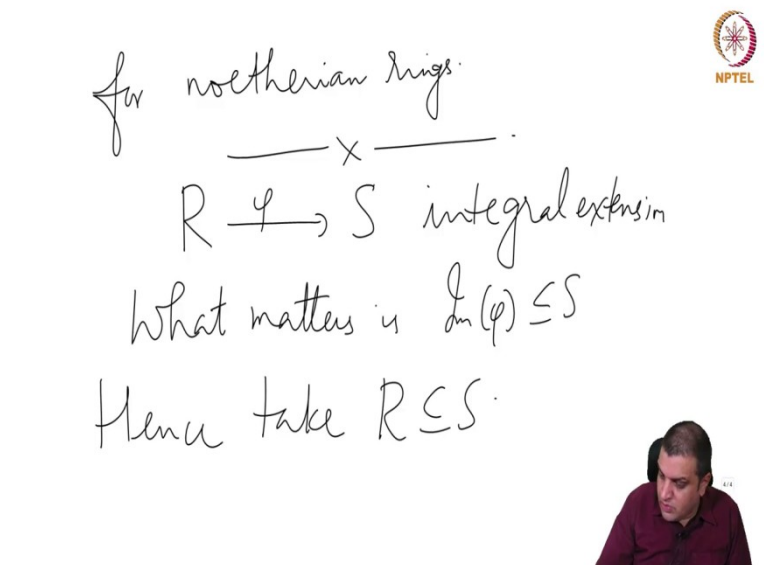 for noetherian rings.
NPTEL
x
R φ→ S integral extension
What matters is Im(φ) ⊆ S
Hence take R ⊆ S.
4/4